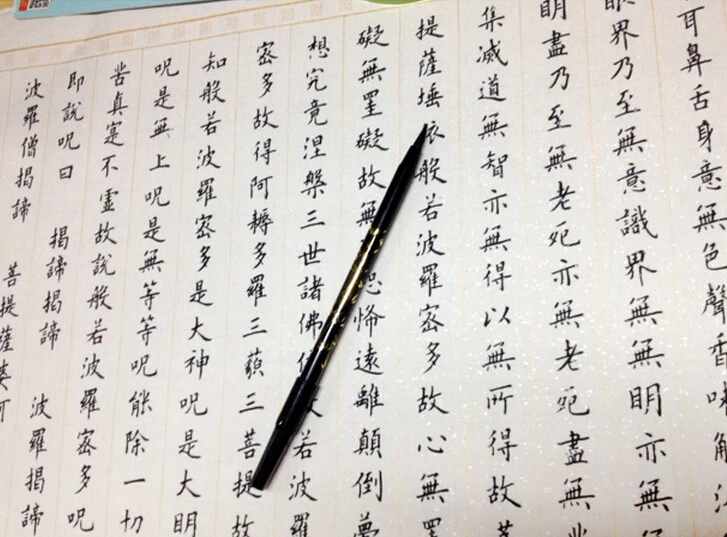 耳鼻舌身意無色聲香味
眼界乃至無意識界無無明亦無
明盡乃至無老死亦無老死盡無
集滅道無智亦無得以無所得故菩
提薩埵依般若波羅密多故心無罣
礙無罣礙故無恐怖遠離顛倒夢
想究竟涅槃三世諸佛依若波羅
密多故得阿耨多羅三藐三菩提故
知般若波羅密多是大神呪是大明
呪是無上呪是無等等呪能除一切
苦真寔不虛故說般若波羅密多呪
即說呪曰 揭諦揭諦 波羅揭諦
波羅僧揭諦 菩提薩婆訶